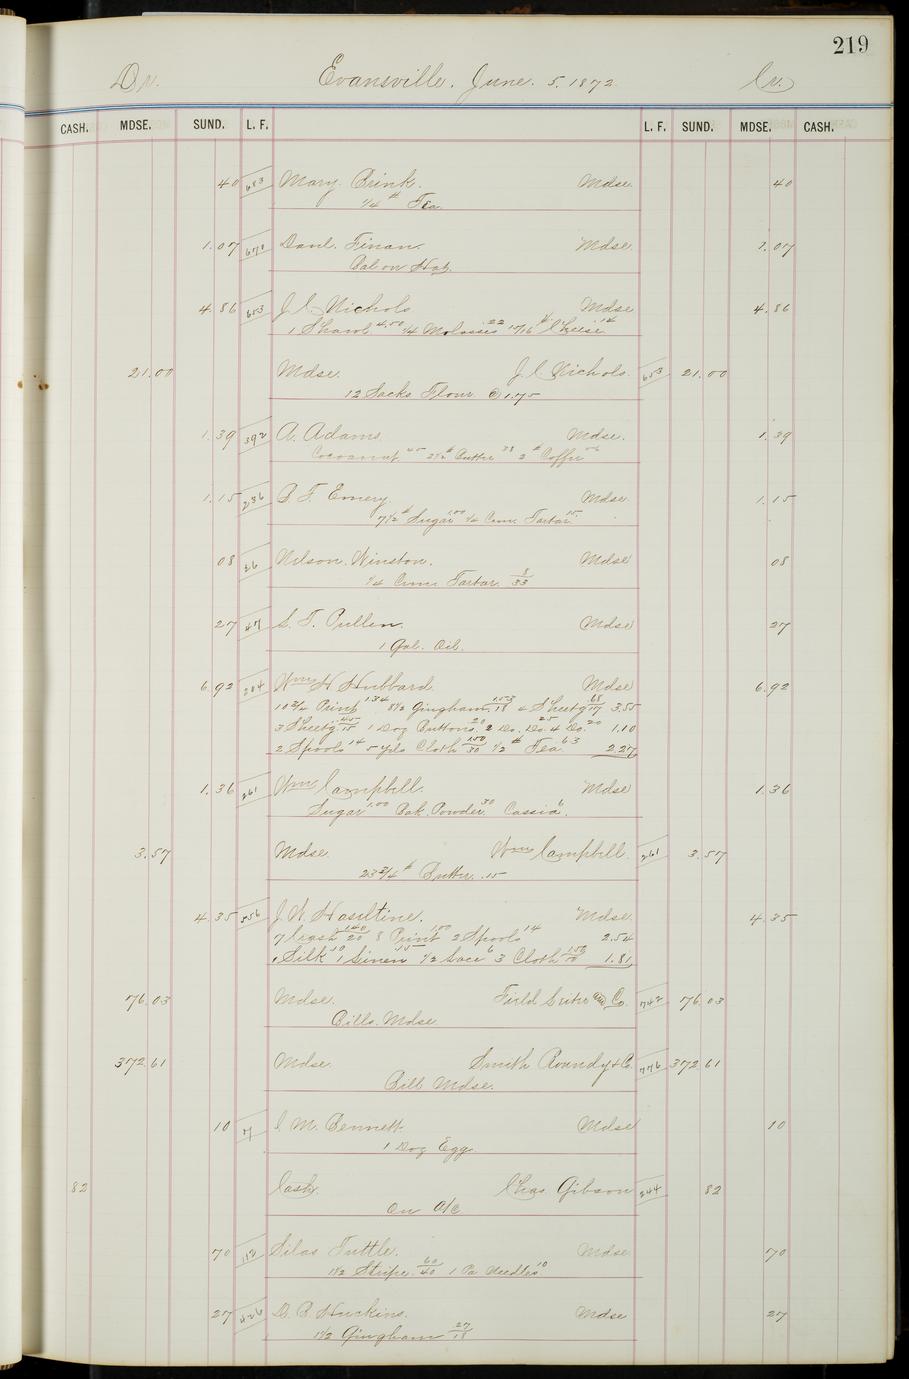 219
Dr. Evansville, June. 5. 1872 Cr.
CASH. MDSE. SUND. L. F. L. F. SUND. MDSE. CASH.
40 653 Mary Brink. Mdse 40
1/4 # Tea
1.07 Danl. Finan. Mdse. 1.07
Bal on Hat.
4.86 653 J C Nichols Mdse 4.86
1 Shawl 4.50 1/4 Molasses 22 Cheese 14
21.00 Mdse. J C Nichols 653 21.00
12 Sacks Flour @ 1.75
1.39 392 A. Adams Mdse. 1.39
Cocoanut 2 1/2 # Butter 38 2 # Coffee 56
1.15 236 B. F. Emery. Mdse 1.15
7 1/2 # Sugar 1.00 1/4 Crm Tartar 15
08 36 Nelson Winston. Mdse 08
1/4 Crm Tartar 8/33
27 47 S. T. Pullen. Mdse 27
1 Gal. Oil.
6.92 284 Wm H Hubbard Mdse 6.92
10 3/4 Print 1.34 8 1/2 Gingham 1.53/18 4 Sheetg 68/17 3.55
3 Sheetg 45/15 1 Doz Buttons 20 2 Do. 25 Do. 4 Do. 20 1.10
2 Spools 14 5 yds Cloth 1.50/30 1/2 # Tea 63 2.27
1.36 261 Wm Campbell. Mdse 1.36
Sugar 1.00 Bak. Powder 30 Cassia 6.
3.57 Mdse. Wm Campbell 261 3.57
23 3/4 # Butter .15
4.35 556 J. W. Haseltine. Mdse 4.35
7 Crash 1.40/20 8 Print 1.00 2 Spools 14 2.54
Silk 10 1 Linen 15 1/2 Lace 6 3 Cloth 1.50/50 1.81
76.03 Mdse. Field Leiter and Co. 742 76.03
Bills. Mdse
372.61 Mdse. Smith Roundy & C. 776 372 61
Bill Mdse.
10 7 C M. Bennett Mdse 10
1 Doz Egg
82 Cash. Chas Gibson 244 82
On A/c
70 112 Silas Tuttle. Mdse 70
1 1/2 Stripe 60/40 1 Pa Needles 10
27 426 D. B. Huckins. Mdse 27
1 1/2 Gingham 27/18